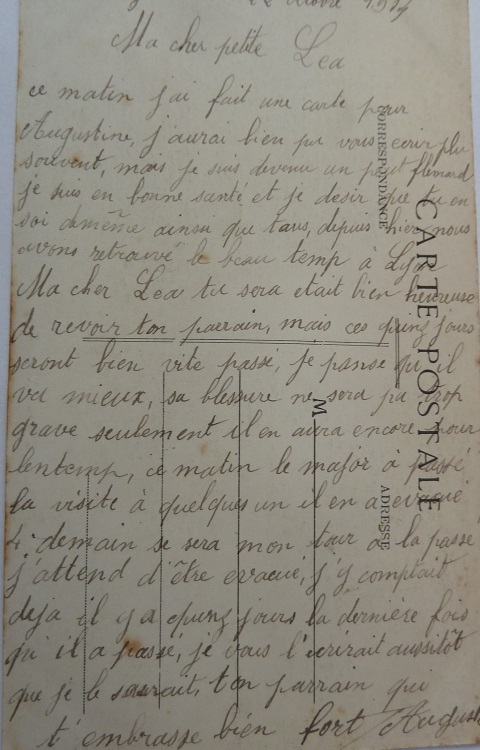 1914
Ma cher petite Lea
ce matin j ai fait une carte pour
Augustine, j'aurai bien pu vous ecrir plu
souvent, mais je suis devenu un petit flemard
je suis en bonne santé et je desir que tu en
soi de même ainsi que tous, depuis hier nous
avons retrouvé le beau temp à Lyon
Ma cher Lea tu sera etait bien heureuse
de revoir ton parrain, mais ces quinz jours
seront bien vite passé, je panse qu il
va mieux, sa blessure ne sera pa trop
grave seulement il en aura encore pour
lentemp, ce matin le major à passé
la visite à quelques un il en a evacué
4. demain se sera mon tour a la passé
j'attend d'être evacué, j'y comptait
deja il y a quinz jours la derniére fois
qu il a passé, je vous l'ecrirait aussitôt
que je le saurait, ton parrain qui
t'embrasse bien fort August
CORRESPONDANCE
CARTE POSTALE
M
ADRESSE